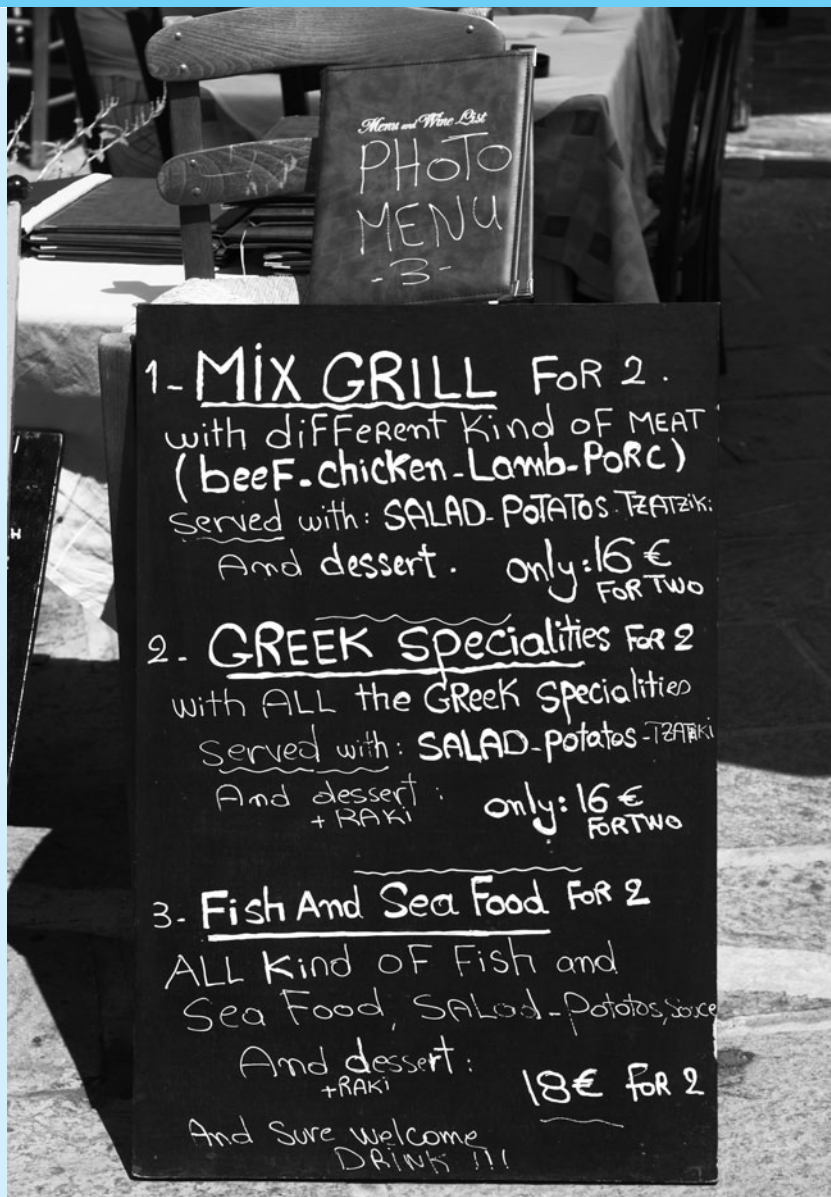 Menu and Wine List
PHOTO
MENU
-3-
1- MiX GRILL FoR 2.
with diFFeRent Kind oF MEAT
(beeF-chicken-Lamb-PoRC)
Served with: SALAD-POTATOS-TZATZiki
And dessert. only: 16 €
FoR TWO
2- GREEK Specialities FoR 2
with ALL the GReeK Specialities
Served with: SALAD-Potatos-TZATZiKi
And dessert: only: 16 €
+ RAKi FoRTWO
3- Fish And Sea Food FoR 2
ALL Kind oF Fish and
Sea Food, SALad-Potatos, Sauce
And dessert:
+RAKi 18€ FoR 2
And Sure welcome
DRiNK !!!